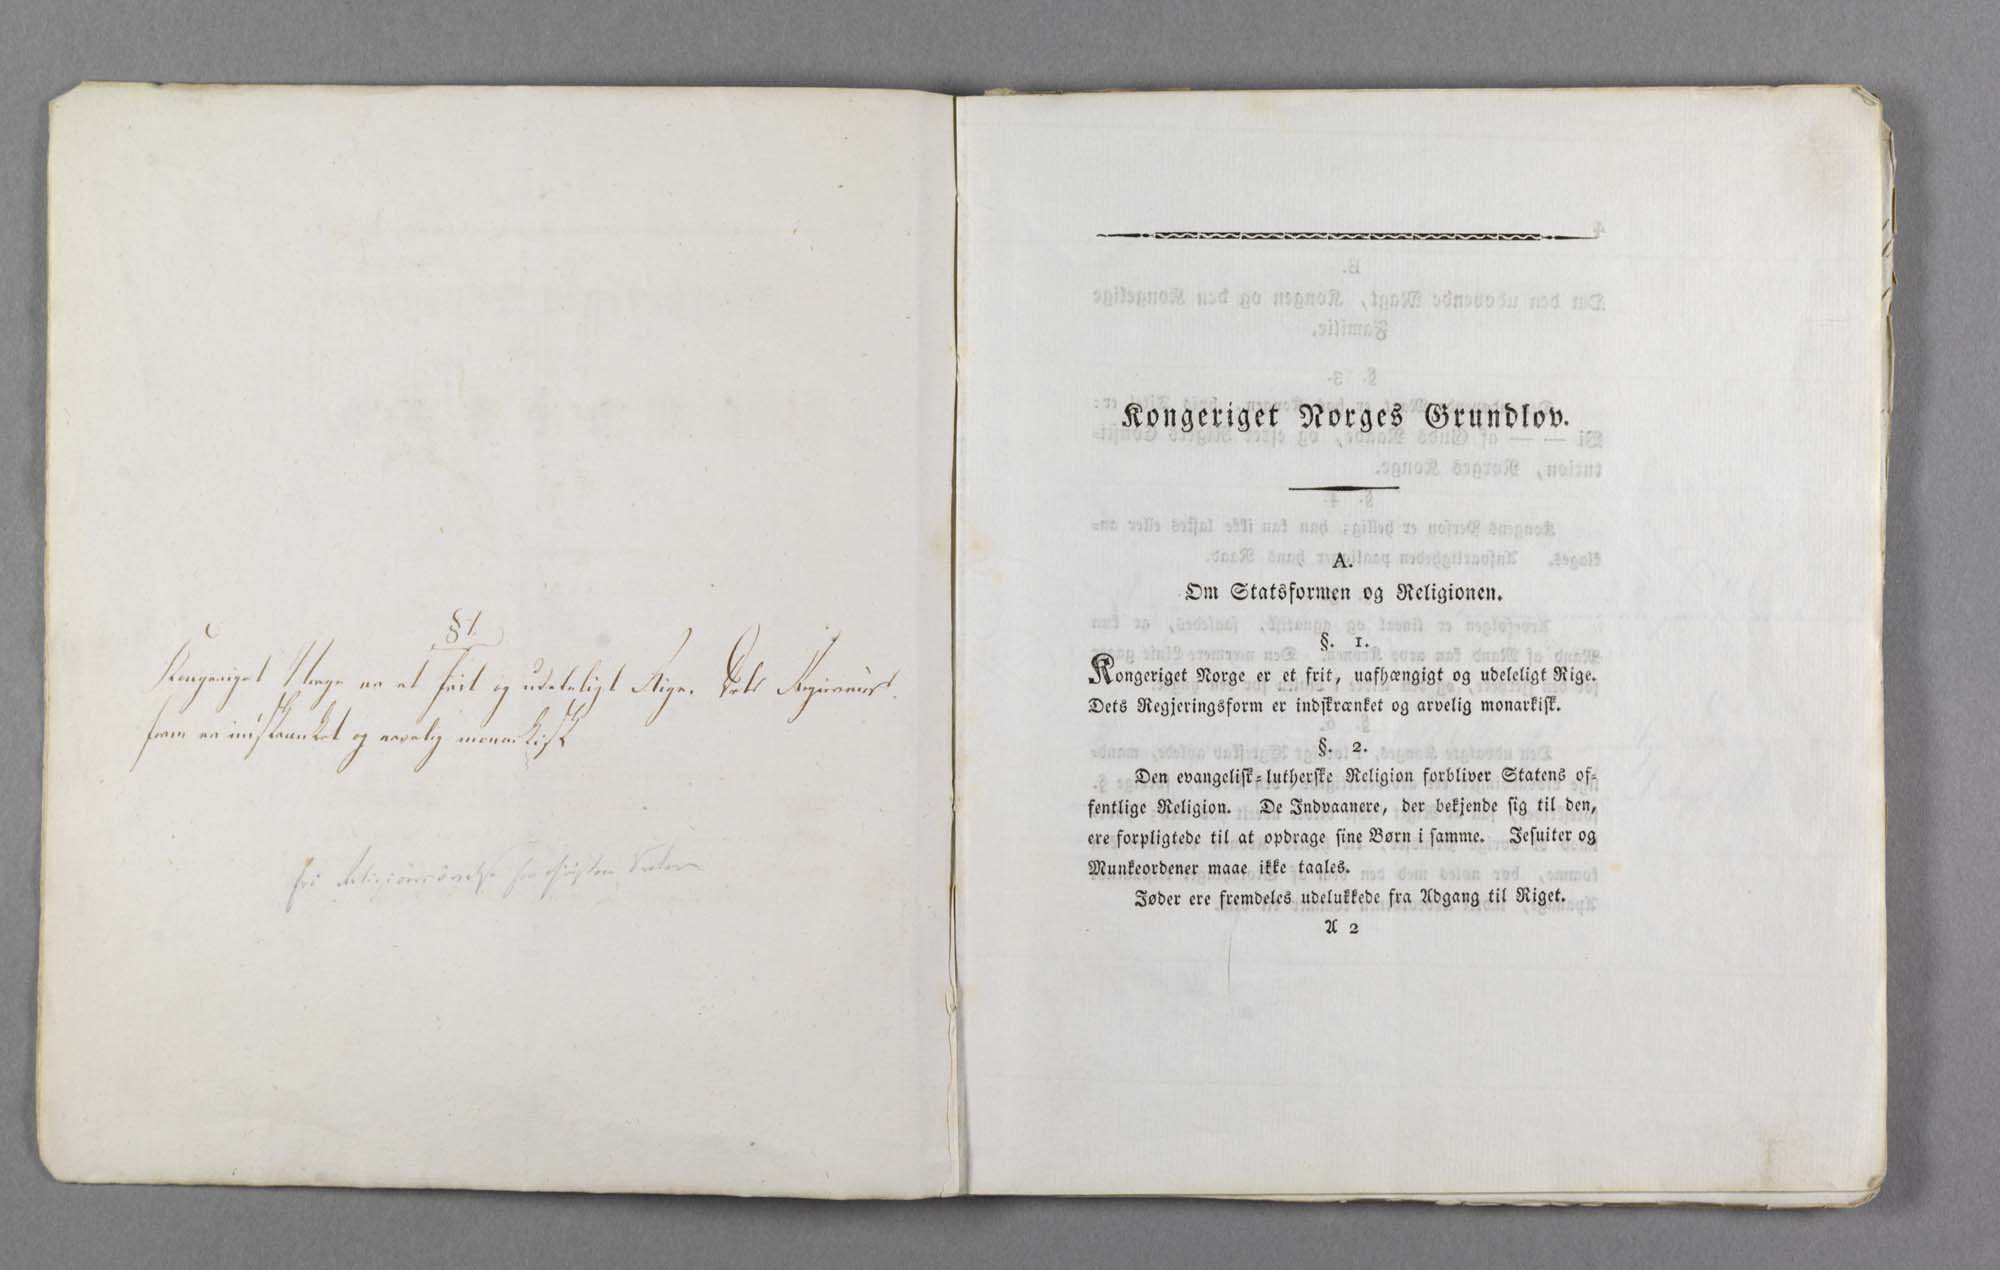 § 1.
Kongeriget Norge er et frit og udeleligt Rige. Dets Regierings-
form er indskrænket og arvelig monarkisk
fri Religionsøvelse
Kongeriget Norges Grundlov.
A.
Om Statsformen og Religionen.
§. 1.
Kongeriget Norge er et frit, uafhængigt og udeleligt Rige.
Dets Regjeringsform er indskrænket og arvelig monarkisk.
§. 2.
Den evangelisk-lutherske Religion forbliver Statens of-
fentlige Religion. De Indvaanere, der bekjende sig til den,
ere forpligtede til at opdrage sine Børn i samme. Jesuiter og
Munkeordener maae ikke taales.
Jøder ere fremdeles udelukkede fra Adgang til Riget.
A 2